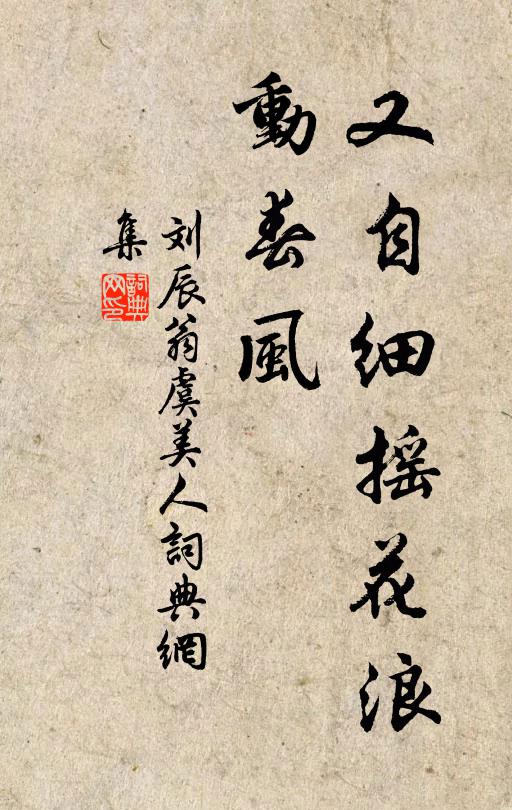 又自细摇花浪
動春風
刘辰翁虞美人詞典網
集
詞典
网印